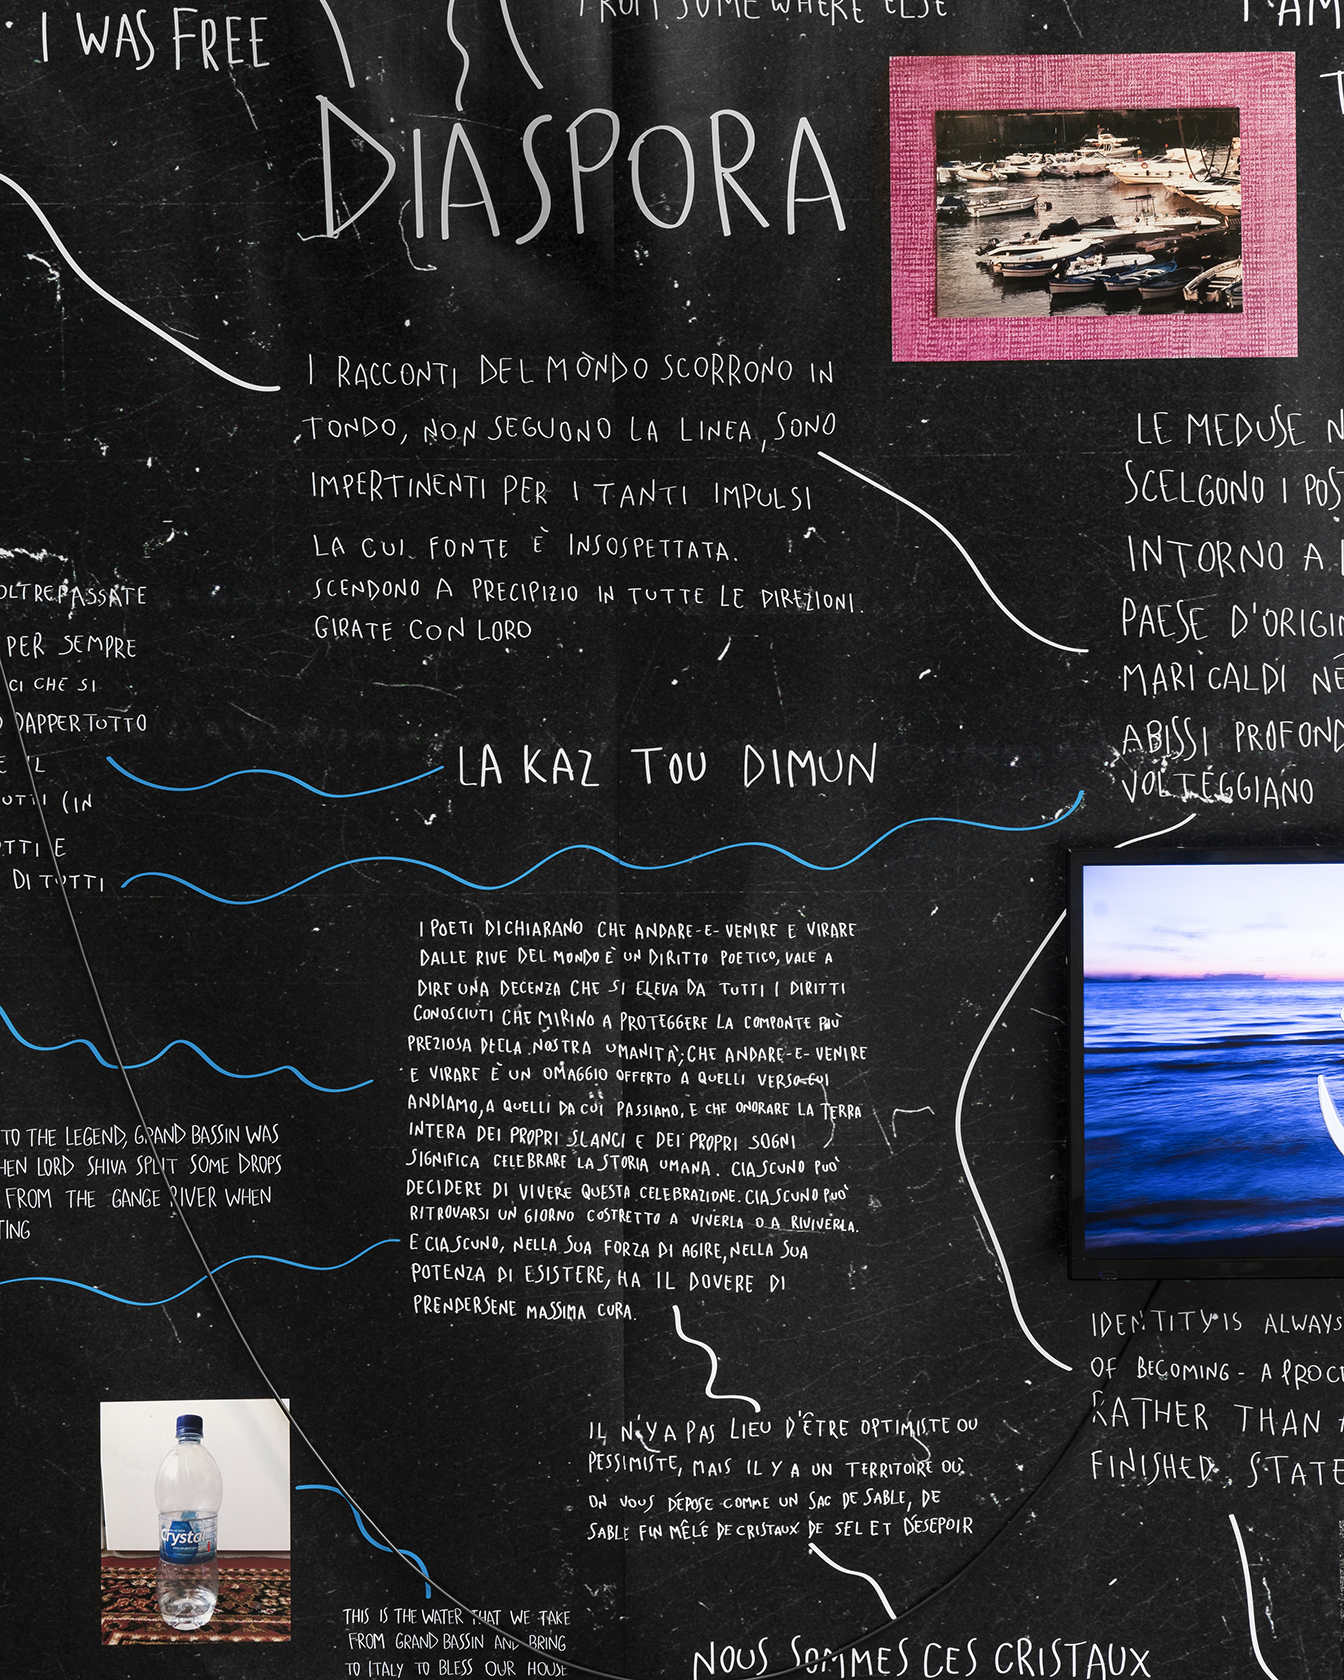 I WAS FREE
FROM SOMEWHERE ELSE
I AM
DIASPORA
I RACCONTI DEL MÒNDO SCORRONO IN
TONDO, NON SEGUONO LA LINEA, SONO
IMPERTINENTI PER I TANTI IMPULSI
LA CUI FONTE È INSOSPETTATA.
SCENDONO A PRECIPIZIO IN TUTTE LE DIREZIONI.
GIRATE CON LORO
LE MEDUSE N
SCELGONO I POS
INTORNO A
PAESE D'ORIGIN
MARI CALDI NÉ
ABISSI PROFOND
VOLTEGGIANO
OLTREPASSATE
PER SEMPRE
CI CHE SI
DAPPERTUTTO
E IL
UTTI (IN
TTI E
DI TUTTI
LA KAZ TOU DIMUN
I POETI DICHIARANO CHE ANDARE-E-VENIRE E VIRARE
DALLE RIVE DEL MONDO È UN DIRITTO POETICO, VALE A
DIRE UNA DECENZA CHE SI ELEVA DA TUTTI I DIRITTI
CONOSCIUTI CHE MIRINO A PROTEGGERE LA COMPONTE PIÙ
PREZIOSA DELLA NOSTRA UMANITÀ; CHE ANDARE-E-VENIRE
E VIRARE È UN OMAGGIO OFFERTO A QUELLI VERSO CUI
ANDIAMO, A QUELLI DA CUI PASSIAMO, E CHE ONORARE LA TERRA
INTERA DEI PROPRI SLANCI E DEI PROPRI SOGNI
SIGNIFICA CELEBRARE LA STORIA UMANA. CIASCUNO PUO'
DECIDERE DI VIVERE QUESTA CELEBRAZIONE. CIASCUNO PUO'
RITROVARSI UN GIORNO COSTRETTO A VIVERLA O A RIVIVERLA.
E CIASCUNO, NELLA SUA FORZA DI AGIRE, NELLA SUA
POTENZA DI ESISTERE, HA IL DOVERE DI
PRENDERSENE MASSIMA CURA.
TO THE LEGEND, GRAND BASSIN WAS
HEN LORD SHIVA SPLIT SOME DROPS
FROM THE GANGE RIVER WHEN
TING
IDENTITY IS ALWAYS
OF BECOMING - A PROCE
RATHER THAN
FINISHED STATE
IL N'Y A PAS LIEU D'ÊTRE OPTIMISTE OU
PESSIMISTE, MAIS IL Y A UN TERRITOIRE OÙ
ON VOUS DÉPOSE COMME UN SAC DE SABLE, DE
SABLE FIN MÊLÉ DE CRISTAUX DE SEL ET DÉSEPOIR
Crystal
THIS IS THE WATER THAT WE TAKE
FROM GRAND BASSIN AND BRING
TO ITALY TO BLESS OUR HOUSE
NOUS SOMMES CES CRISTAUX